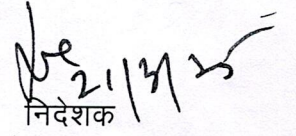 21/3/25
निदेशक